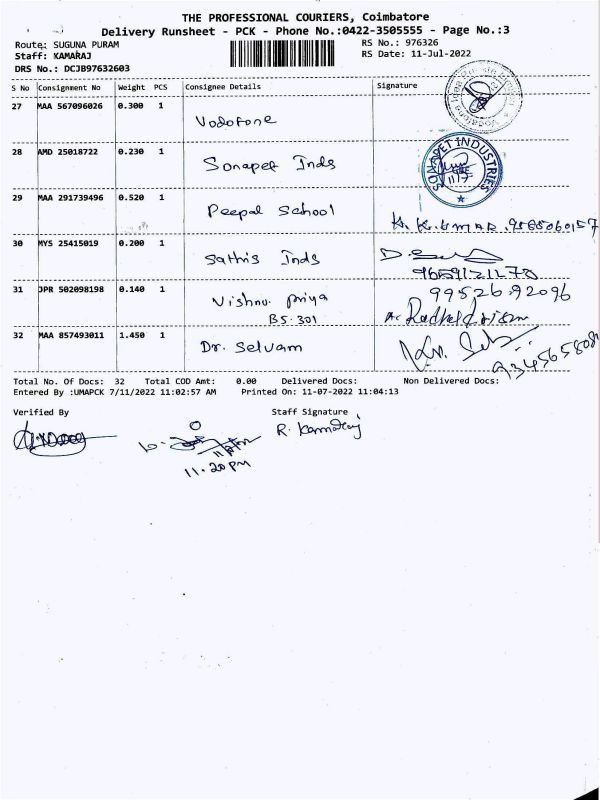 THE PROFESSIONAL COURIERS, Coimbatore
Delivery Runsheet - PCK - Phone No.:0422-3505555 - Page No.:3
Route: SUGUNA PURAM RS No.: 976326
Staff: KAMARAJ RS Date: 11-Jul-2022
DRS No.: DCJB97632603
S No Consignment No Weight PCS Consignee Details Signature
27 MAA 567096026 0.300 1 Vodofone
28 AMD 25018722 0.230 1 Sonapet Inds
SONAPET INDUSTRIES
29 MAA 291739496 0.520 1 Peepal School
K. KUMAR. 9568060157
30 MYS 25415019 0.200 1 Sathis Inds
9659121278
31 JPR 502098198 0.140 1 Vishnu priya
BS.301
99526.92096
32 MAA 857493011 1.450 1 Dr. Selvam
Total No. Of Docs: 32 Total COD Amt: 0.00 Delivered Docs: Non Delivered Docs:
Entered By :UMAPCK 7/11/2022 11:02:57 AM Printed On: 11-07-2022 11:04:13
Verified By Staff Signature
R. Kamaraj
11.20 PM